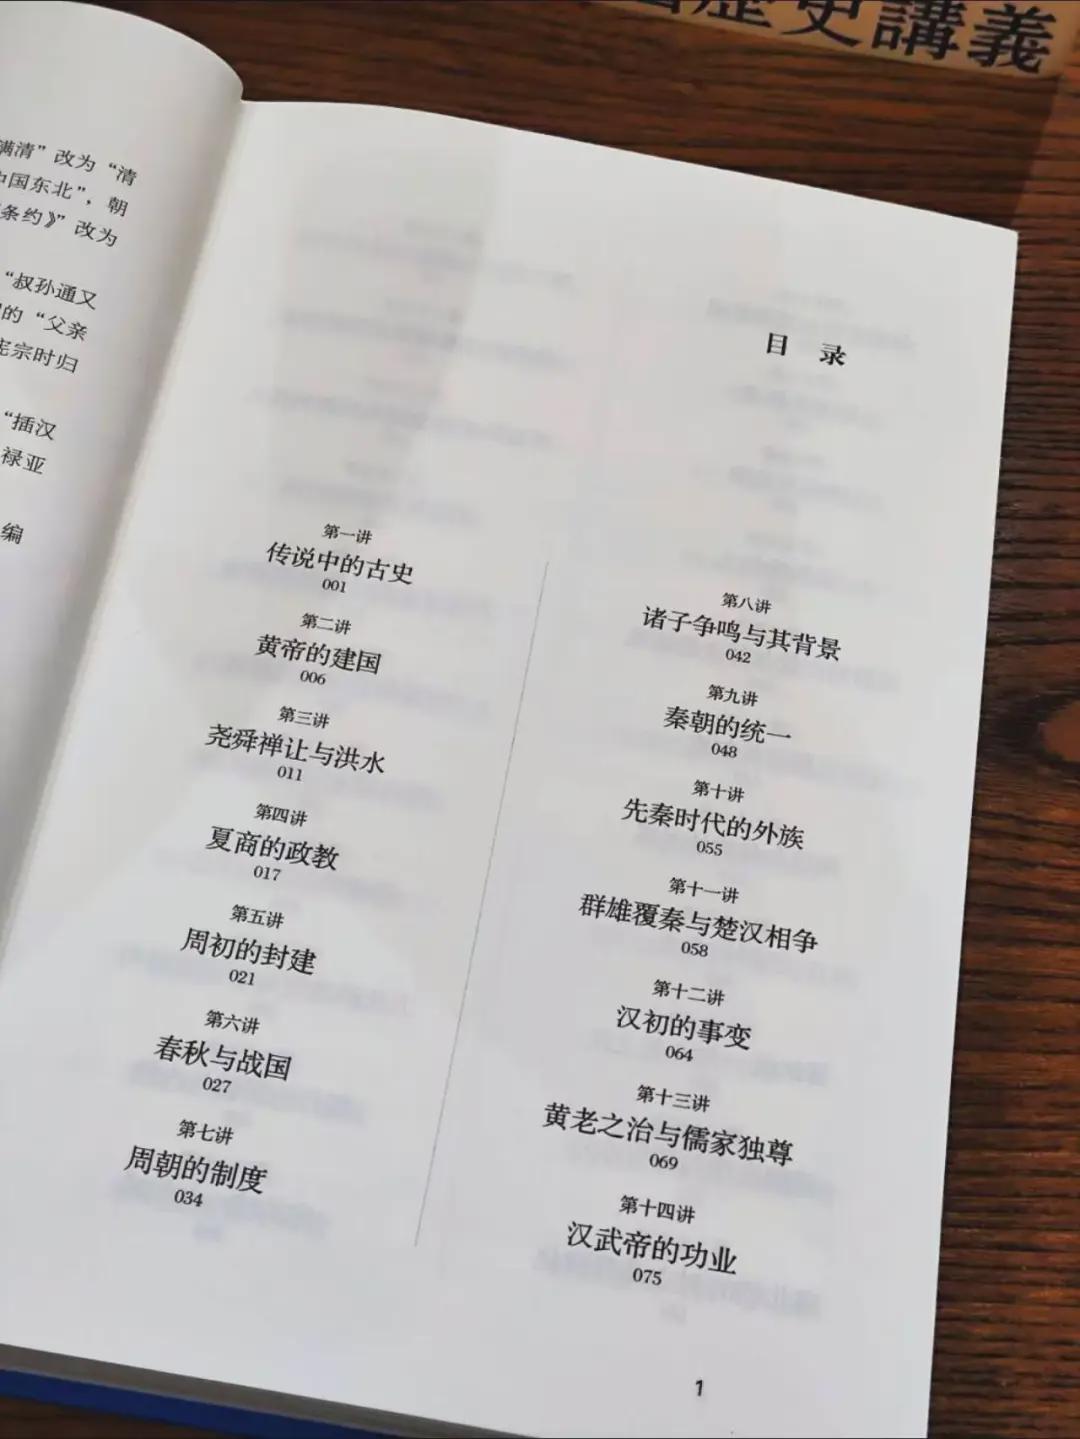 歷史講義
满清”改为“清
中国东北”，朝
条约》”改为
“叔孙通又
的“父亲
宪宗时归
“插汉
禄亚
编
目 录
第一讲
传说中的古史
001
第二讲
黄帝的建国
006
第三讲
尧舜禅让与洪水
011
第四讲
夏商的政教
017
第五讲
周初的封建
021
第六讲
春秋与战国
027
第七讲
周朝的制度
034
第八讲
诸子争鸣与其背景
042
第九讲
秦朝的统一
048
第十讲
先秦时代的外族
055
第十一讲
群雄覆秦与楚汉相争
058
第十二讲
汉初的事变
064
第十三讲
黄老之治与儒家独尊
069
第十四讲
汉武帝的功业
075
1